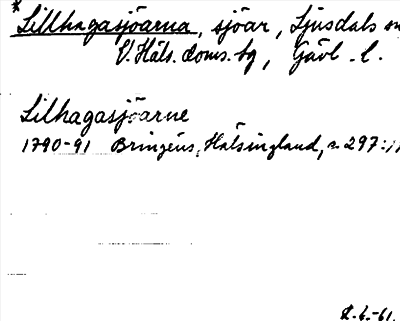 * Lillhagasjöarna, sjöar, Ljusdals sn
V. Häls. doms. tg, Gävl. l.
Lilhagasjöarne
1790-91 Bringéus, Hälsingland, s 297: